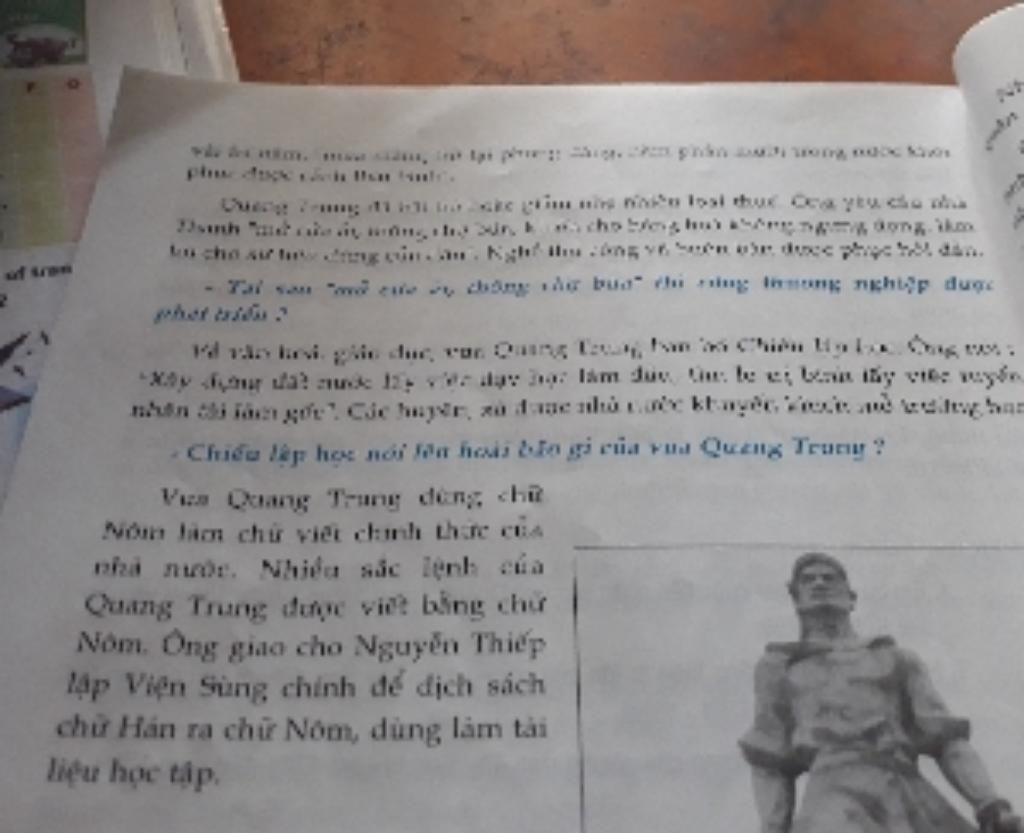 phục được cảnh thái bình".
Quang Trung đã bãi bỏ hoặc giảm nhẹ nhiều loại thuế. Ông yêu cầu nhà
Thanh "mở cửa ải, thông chợ búa, khiến cho hàng hoá không ngưng đọng, làm
lợi cho sự tiêu dùng của dân". Nghề thủ công và buôn bán được phục hồi dần.
- Tại sao "mở cửa ải, thông chợ búa" thì công thương nghiệp được
phát triển ?
Về văn hoá, giáo dục, vua Quang Trung ban bố Chiếu lập học. Ông
"Xây dựng đất nước lấy việc dạy học làm đầu, tìm lẽ trị bình lấy việc tuyển
nhân tài làm gốc". Các huyện, xã được nhà nước khuyến khích mở trường học
- Chiếu lập học nói lên hoài bão gì của vua Quang Trung ?
Vua Quang Trung dùng chữ
Nôm làm chữ viết chính thức của
nhà nước. Nhiều sắc lệnh của
Quang Trung được viết bằng chữ
Nôm. Ông giao cho Nguyễn Thiếp
lập Viện Sùng chính để dịch sách
chữ Hán ra chữ Nôm, dùng làm tài
liệu học tập.